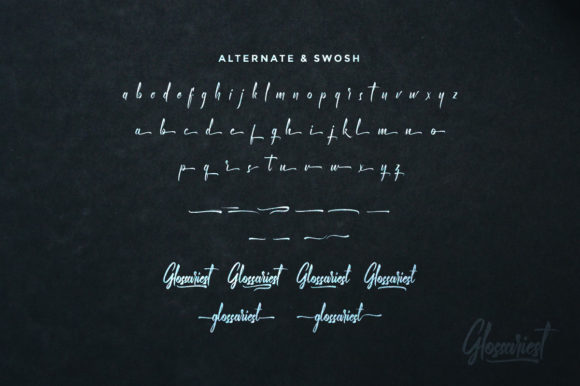 ALTERNATE & SWOSH
a b c d e f g h i j k l m n o p q r s t u v w x y z
a b c d e f g h i j k l m n o
p q r s t u v w x y z
Glossariest Glossariest Glossariest Glossariest
glossariest glossariest
Glossariest